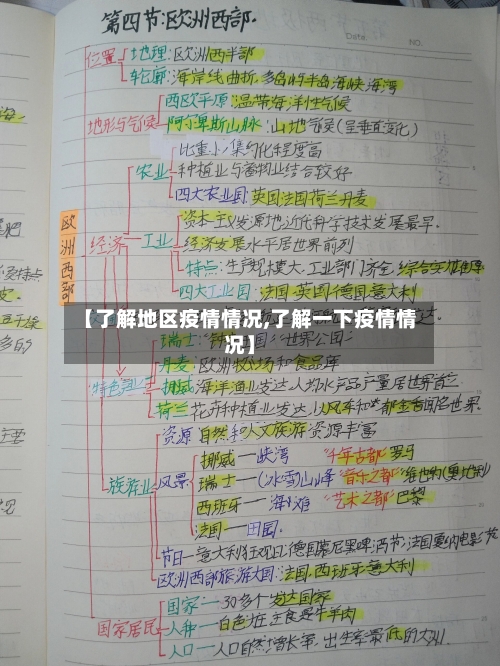 第四节:欧洲西部.
Date.
NO.
位置
地理:欧洲西半部
轮廓:海岸线曲折,多岛屿半岛海峡海湾
西欧平原:温带海洋性气候
地形与气候
阿尔卑斯山脉:山地气候(呈垂直变化)
比重小,集约化程度高
农业
种植业与畜物业结合较好
四大农业国:英国法国荷兰丹麦
欧洲西部
资本主义发源地近代科学技术发展最早.
经济
工业
经济发展水平居世界前列
特点:生产规模大,工业部门齐全,综合实力雄厚
四大工业国:法国,英国,德国,意大利
【了解地区疫情情况,了解一下疫情情况】
瑞士:"钟
"世界公园"
丹麦:欧洲牧场和食品库
特色
挪威:海洋渔业发达,人均水产品产量居世界首位
荷兰:花卉种植业发达,以风车和"郁金香闻名世界.
资源:自然和人文旅游资源丰富
挪威—峡湾
"千年古都"罗马
旅游业
风景
瑞士—(冰雪)山峰
"音乐之都"维也纳(奥地利)
西班牙—海滩
"艺术之都"巴黎
法国—田园.
节日—意大利狂欢日,德国慕尼黑啤酒节,法国戛纳电影节
欧洲西部旅游大国:法国,西班牙,意大利
国家居民
国家—30多个发达国家
人种—白色为主,食是牛羊肉
人口—人口自然增长率,出生率最低的大洲.